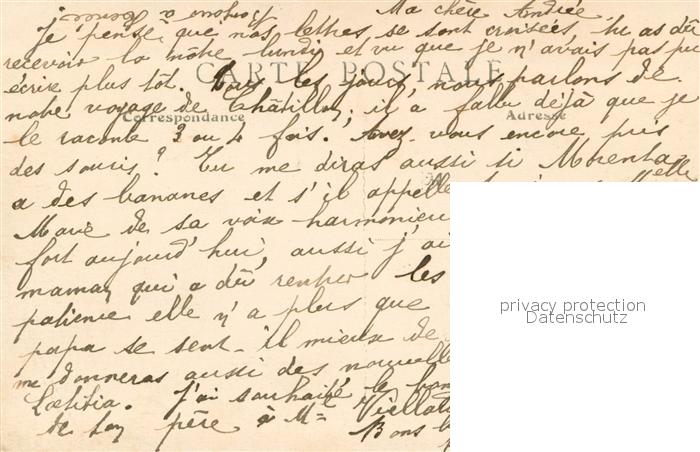 Bonjour à
Ma chère Andrée
Je pense que nos lettres se sont croisées, tu as dû
recevoir la nôtre lundi et vu que je n'avais pas pu
écrire plus tôt. Tous les jours nous parlons de
CARTE POSTALE
notre voyage de Châtillon, il a fallu déjà que je
Correspondance
Adresse
le raconte 3 ou 4 fois. Avez vous encore pris
des souris? Tu me diras aussi si
a des bananes et s'il appelle elle
Marie de sa voix harmonieu
fort aujourd'hui, aussi j'ai
maman qui a dû rentrer les
patience elle n'a plus que
papa se sent-il mieux de
me donneras aussi des nouvelle
Lœtitia. J'ai souhaité le bon
de ton père à Mme
Bons
privacy protection
Datenschutz